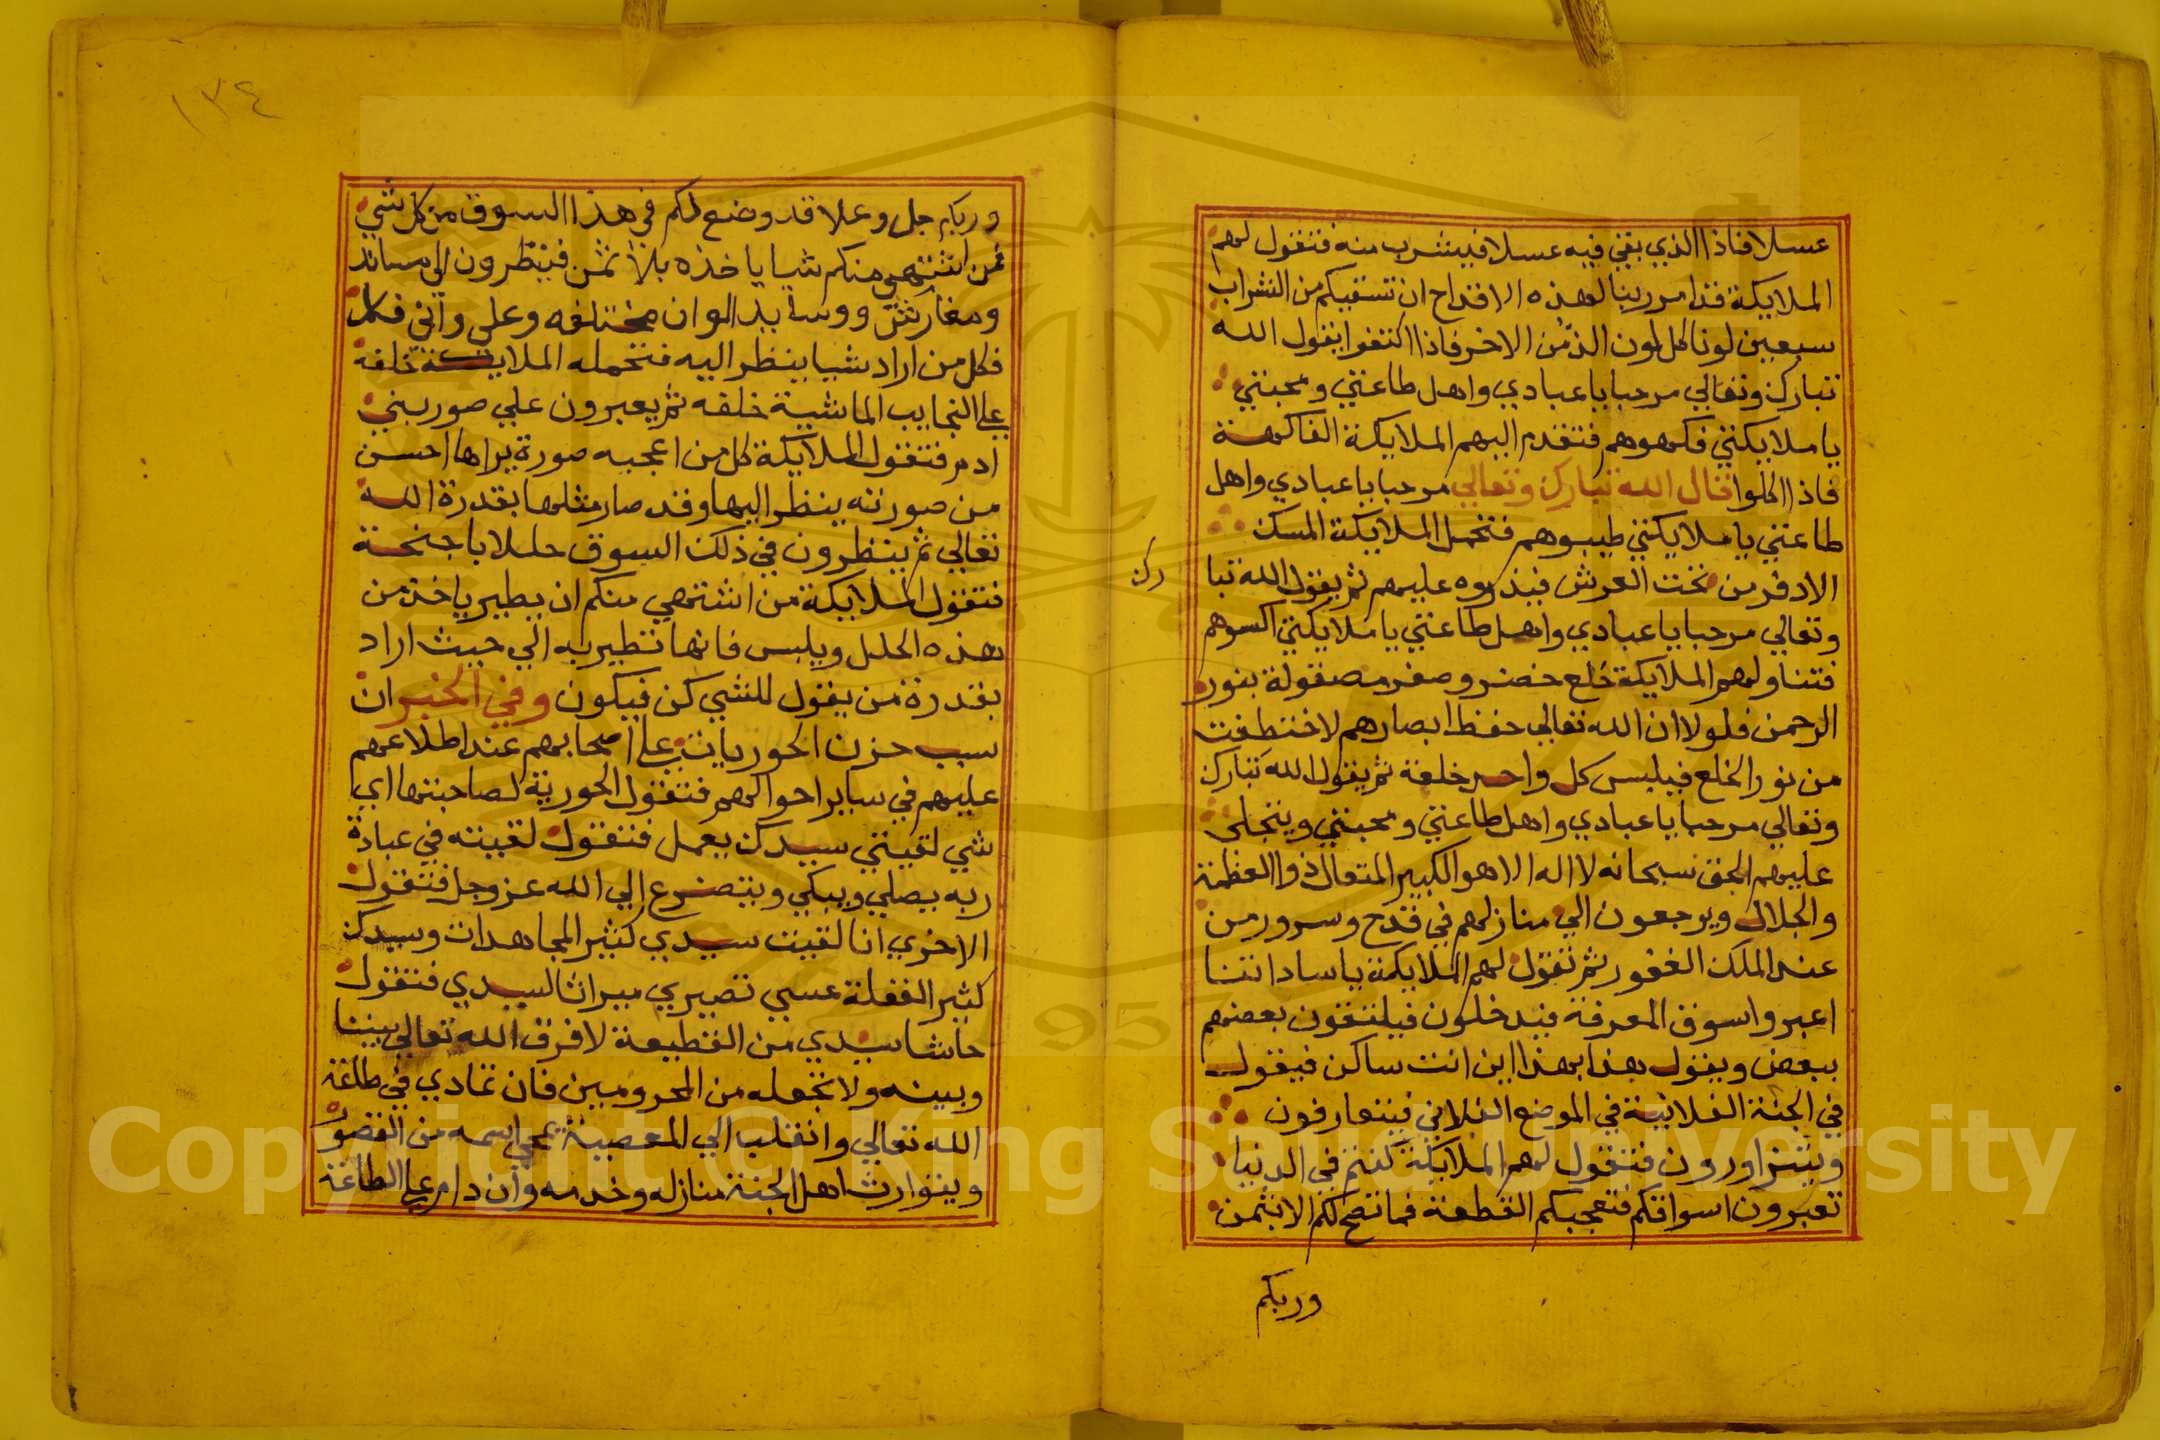 عسلا فاذا الذي بقي فيه عسلا فيشرب منه فتقول لهم
الملايكة قد امر ربنا لهذه الاقداح ان تسقيكم من الشراب
سبعين لونا كل لون الذ من الاخر فاذا اكتفوا يقول الله
تبارك وتعالي مرحبا يا عبادي واهل طاعتي ومحبتي
يا ملايكتي فكهوهم فتقدم اليهم الملايكة الفاكهة
فاذا اكلوا قال الله تبارك وتعالي مرحبا يا عبادي واهل
طاعتي يا ملايكتي طيبوهم فتحمل الملايكة المسك
الادفر من تحت العرش فيذروه عليهم ثم يقول الله تبا
رك
وتعالي مرحبا يا عبادي واهل طاعتي يا ملايكتي اكسوهم
فتناولهم الملايكة خلع خضر وصفر مصقولة بنور
الرحمن فلولا ان الله تعالي حفظ ابصارهم لاختطفت
من نور الخلع فيلبس كل واحد خلعة ثم يقول الله تبارك
وتعالي مرحبا يا عبادي واهل طاعتي ومحبتي ويتجلى
عليهم الحق سبحانه لا اله الا هو الكبير المتعال ذوا العظمة
والجلال ويرجعون الي منازلهم في فدح وسرور من
عند الملك الغفور ثم تقول لهم الملايكة يا ساداتنا
اعبروا سوق المعرفة فيدخلون فيلتقون بعضهم
ببعض ويقول هذا لهذا اين انت ساكن فيقول
في الجنة الفلانية في الموضع الفلاني فيتعارفون
ويتزاورون فتقول لهم الملايكة كنتم في الدنيا
تعبرون اسواقكم فتعجبكم القطعة فما تصح لكم الا بثمن
وربكم
١٣٤
وربكم جل وعلا قد وضع لكم في هذا السوق من كل شي
فمن اشتهي منكم شيا ياخذه بلا ثمن فينظرون الي مساند
ومفارش ووسايد الوان مختلفه وعلي واني فكل
فكل من اراد شيا ينظر اليه فتحمله الملايكة خلفه
علي النجايب الماشية خلفه ثم يعبرون علي صور بني
ادم فتقول الملايكة كل من اعجبه صورة يراها احسن
من صورته ينظر اليها وقد صار مثلها بقدرة الله
تعالي ثم ينظرون في ذلك السوق حللا باجنحة
فتقول الملايكة من اشتهي منكم ان يطير ياخذ من
هذه الحلل ويلبس فانها تطير به الي حيث اراد
بقدرة من يقول للشي كن فيكون وفي الخبر ان
سبب حزن الحوريات علي اصحابهم عند اطلاعهم
عليهم في ساير احوالهم فتقول الحورية لصاحبتها اي
شي لقيتي سيدك يعمل فتقول لقيته في عبادة
ربه يصلي ويبكي ويتضرع الي الله عز وجل فتقول
الاخري انا لقيت سيدي كثير المجاهدات وسيدك
كثير الغفلة عسي تصيري ميراثا لسيدي فتقول
حاشا سيدي من القطيعة لا فرق الله تعالي بيننا
وبينه ولا تجعله من المحرومين فان تمادي في طاعة
الله تعالي وانقلب الي المعصية يمحي اسمه من القصور
ويتوارث اهل الجنة منازله وخدمه وان دام علي الطاعة